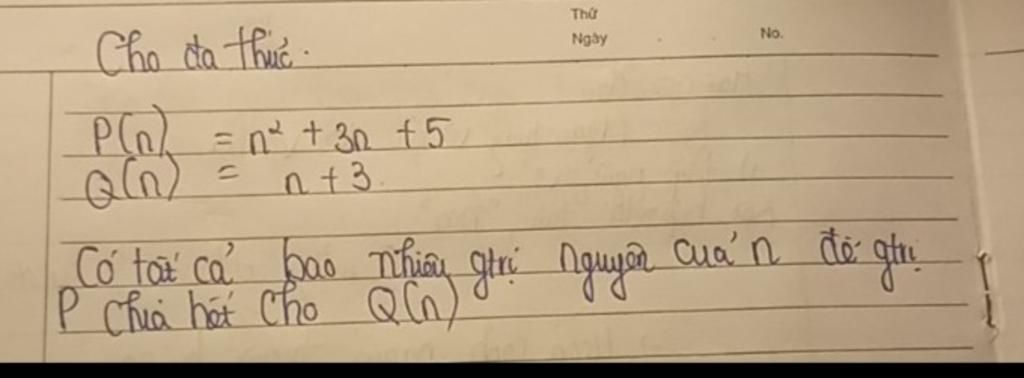 Thứ
Ngày
No.
Cho đa thức.
P(n) = n² + 3n + 5
Q(n) = n + 3.
Có tất cả bao nhiêu gtrị nguyên của n để gtrị
P chia hết cho Q(n)